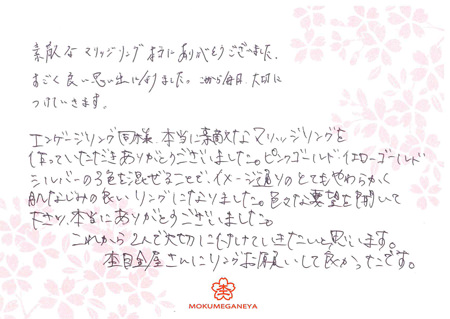 素敵なマリッジリング本当にありがとうございました。
すごく良い思い出になりました。これから毎日、大切に
つけていきます。
エンゲージリング同様、本当に素敵なマリッジリングを
作っていただきありがとうございました。ピンクゴールド、イエローゴールド
シルバーの3色を混ぜることで、イメージ通りのとてもやわらかく
肌なじみの良いリングになりました。色々な要望を聞いて
下さり、本当にありがとうございました。
これから2人で大切につけていきたいと思います。
杢目金屋さんにリングお願いして良かったです。
MOKUMEGANEYA